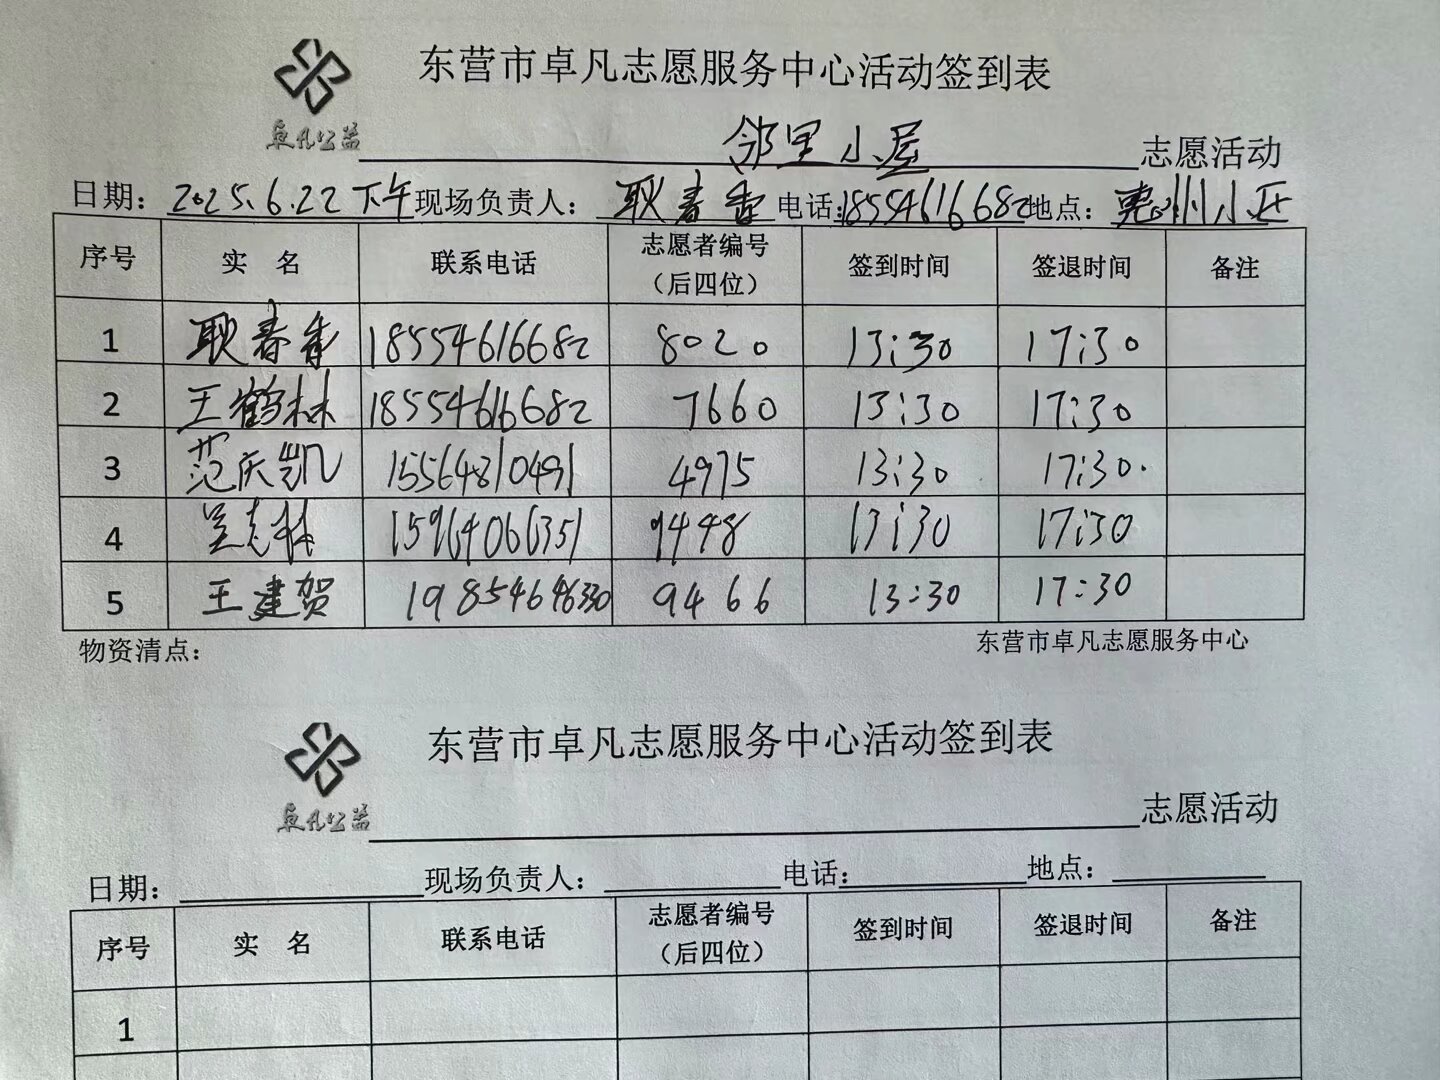 东营市卓凡志愿服务中心活动签到表
卓凡公益
邻里小屋 志愿活动
日期：2025.6.22下午 现场负责人：耿春香 电话：18554616682 地点：惠州小区
序号 实 名 联系电话 志愿者编号（后四位） 签到时间 签退时间 备注
1 耿春香 18554616682 8020 13:30 17:30
2 王鹤林 18554616682 7660 13:30 17:30
3 范庆凯 15564810491 4975 13:30 17:30.
4 吴志林 15964066351 9448 13:30 17:30
5 王建贺 9466 13:30 17:30
物资清点： 东营市卓凡志愿服务中心
东营市卓凡志愿服务中心活动签到表
卓凡公益
志愿活动
日期： 现场负责人： 电话： 地点：
序号 实 名 联系电话 志愿者编号（后四位） 签到时间 签退时间 备注
1